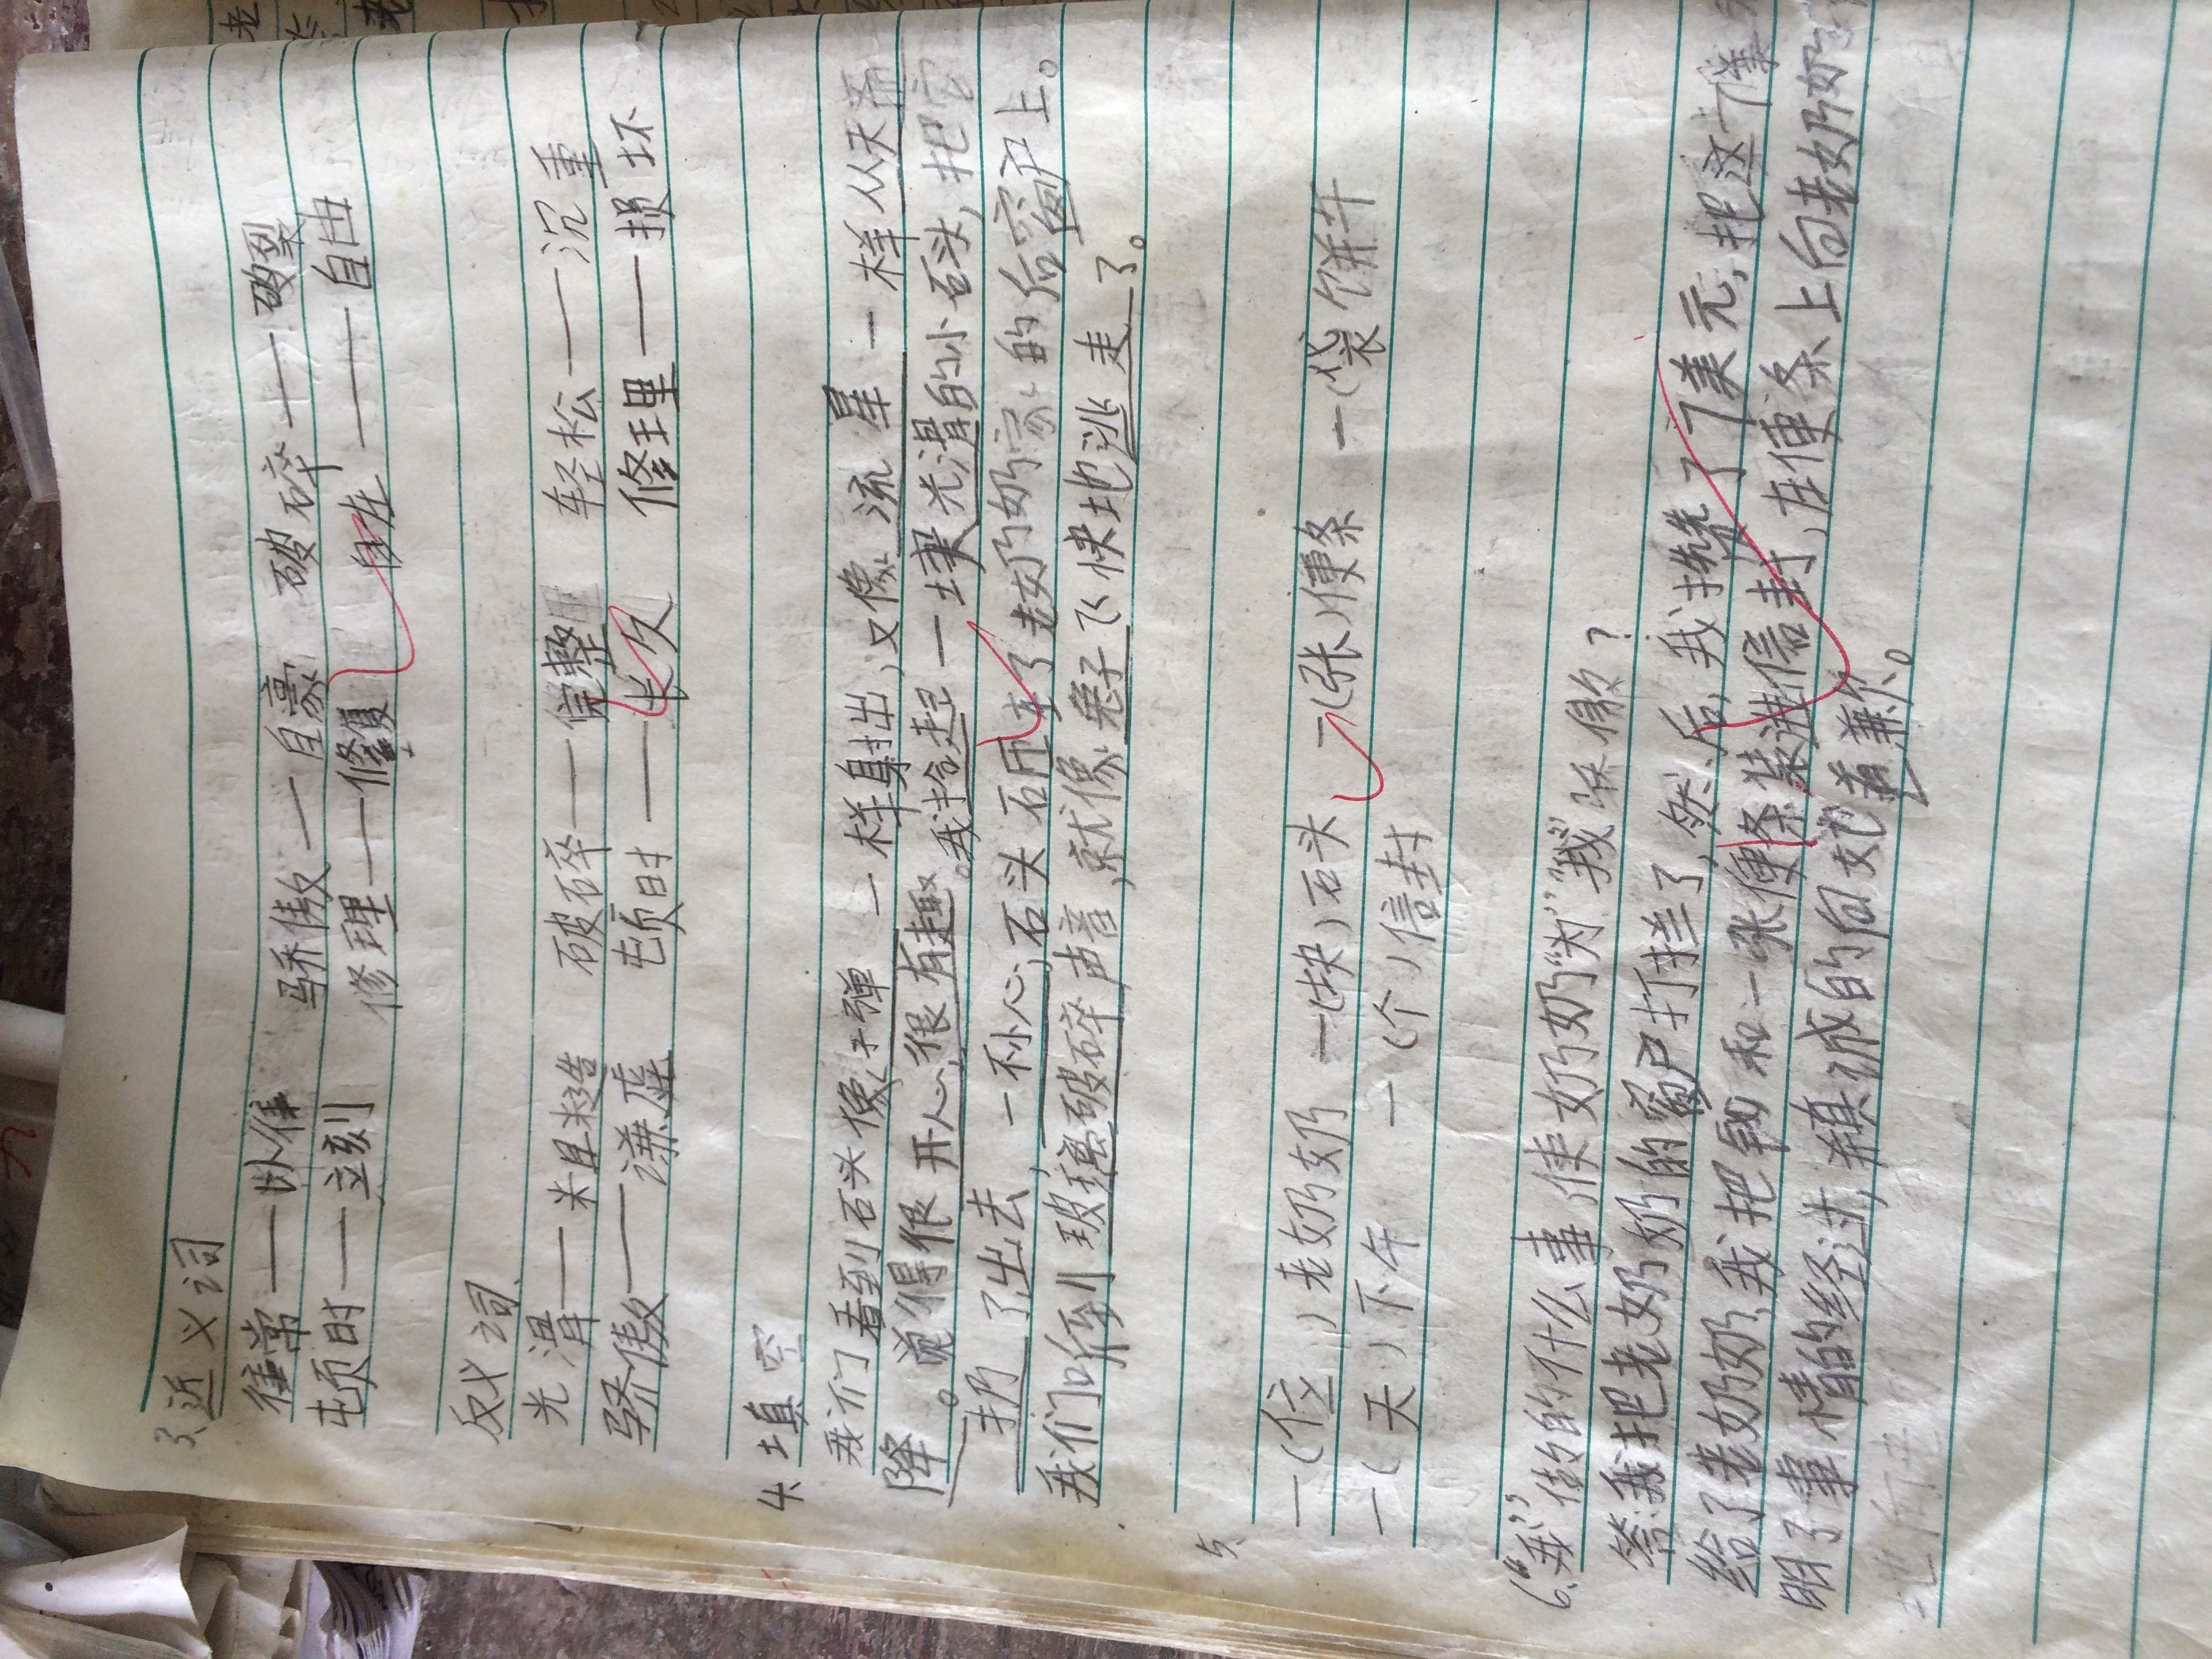 3、近义词
往常——以往 骄傲——自豪 破碎——破裂
顿时——立刻 修理——修复 自在——自由
反义词
光滑——粗糙 破碎——完整 轻松——沉重
骄傲——谦虚 顿时——长久 修理——损坏
4、填空
我们看到石头像子弹一样射出,又像流星一样从天而
降。觉得很开心,很有趣。我拾起一块光滑的小石头,把它
扔了出去,一不小心,石头砸在了老奶奶家的后窗户上。
我们听到玻璃破碎声音,就像兔子飞快地逃走了。
5、
一(位)老奶奶 一(块)石头 一(张)便条 一(袋)饼干
一(天)下午 一(个)信封
6、“我”做的什么事使奶奶“为”“我”骄傲?
答:我把老奶奶的窗户打拦了,然后,我攒了7美元,把这7美
给了老奶奶,我把钱和一张便条装进信封,在便条上向老奶奶
明了事情的经过,真诚的向她道歉。